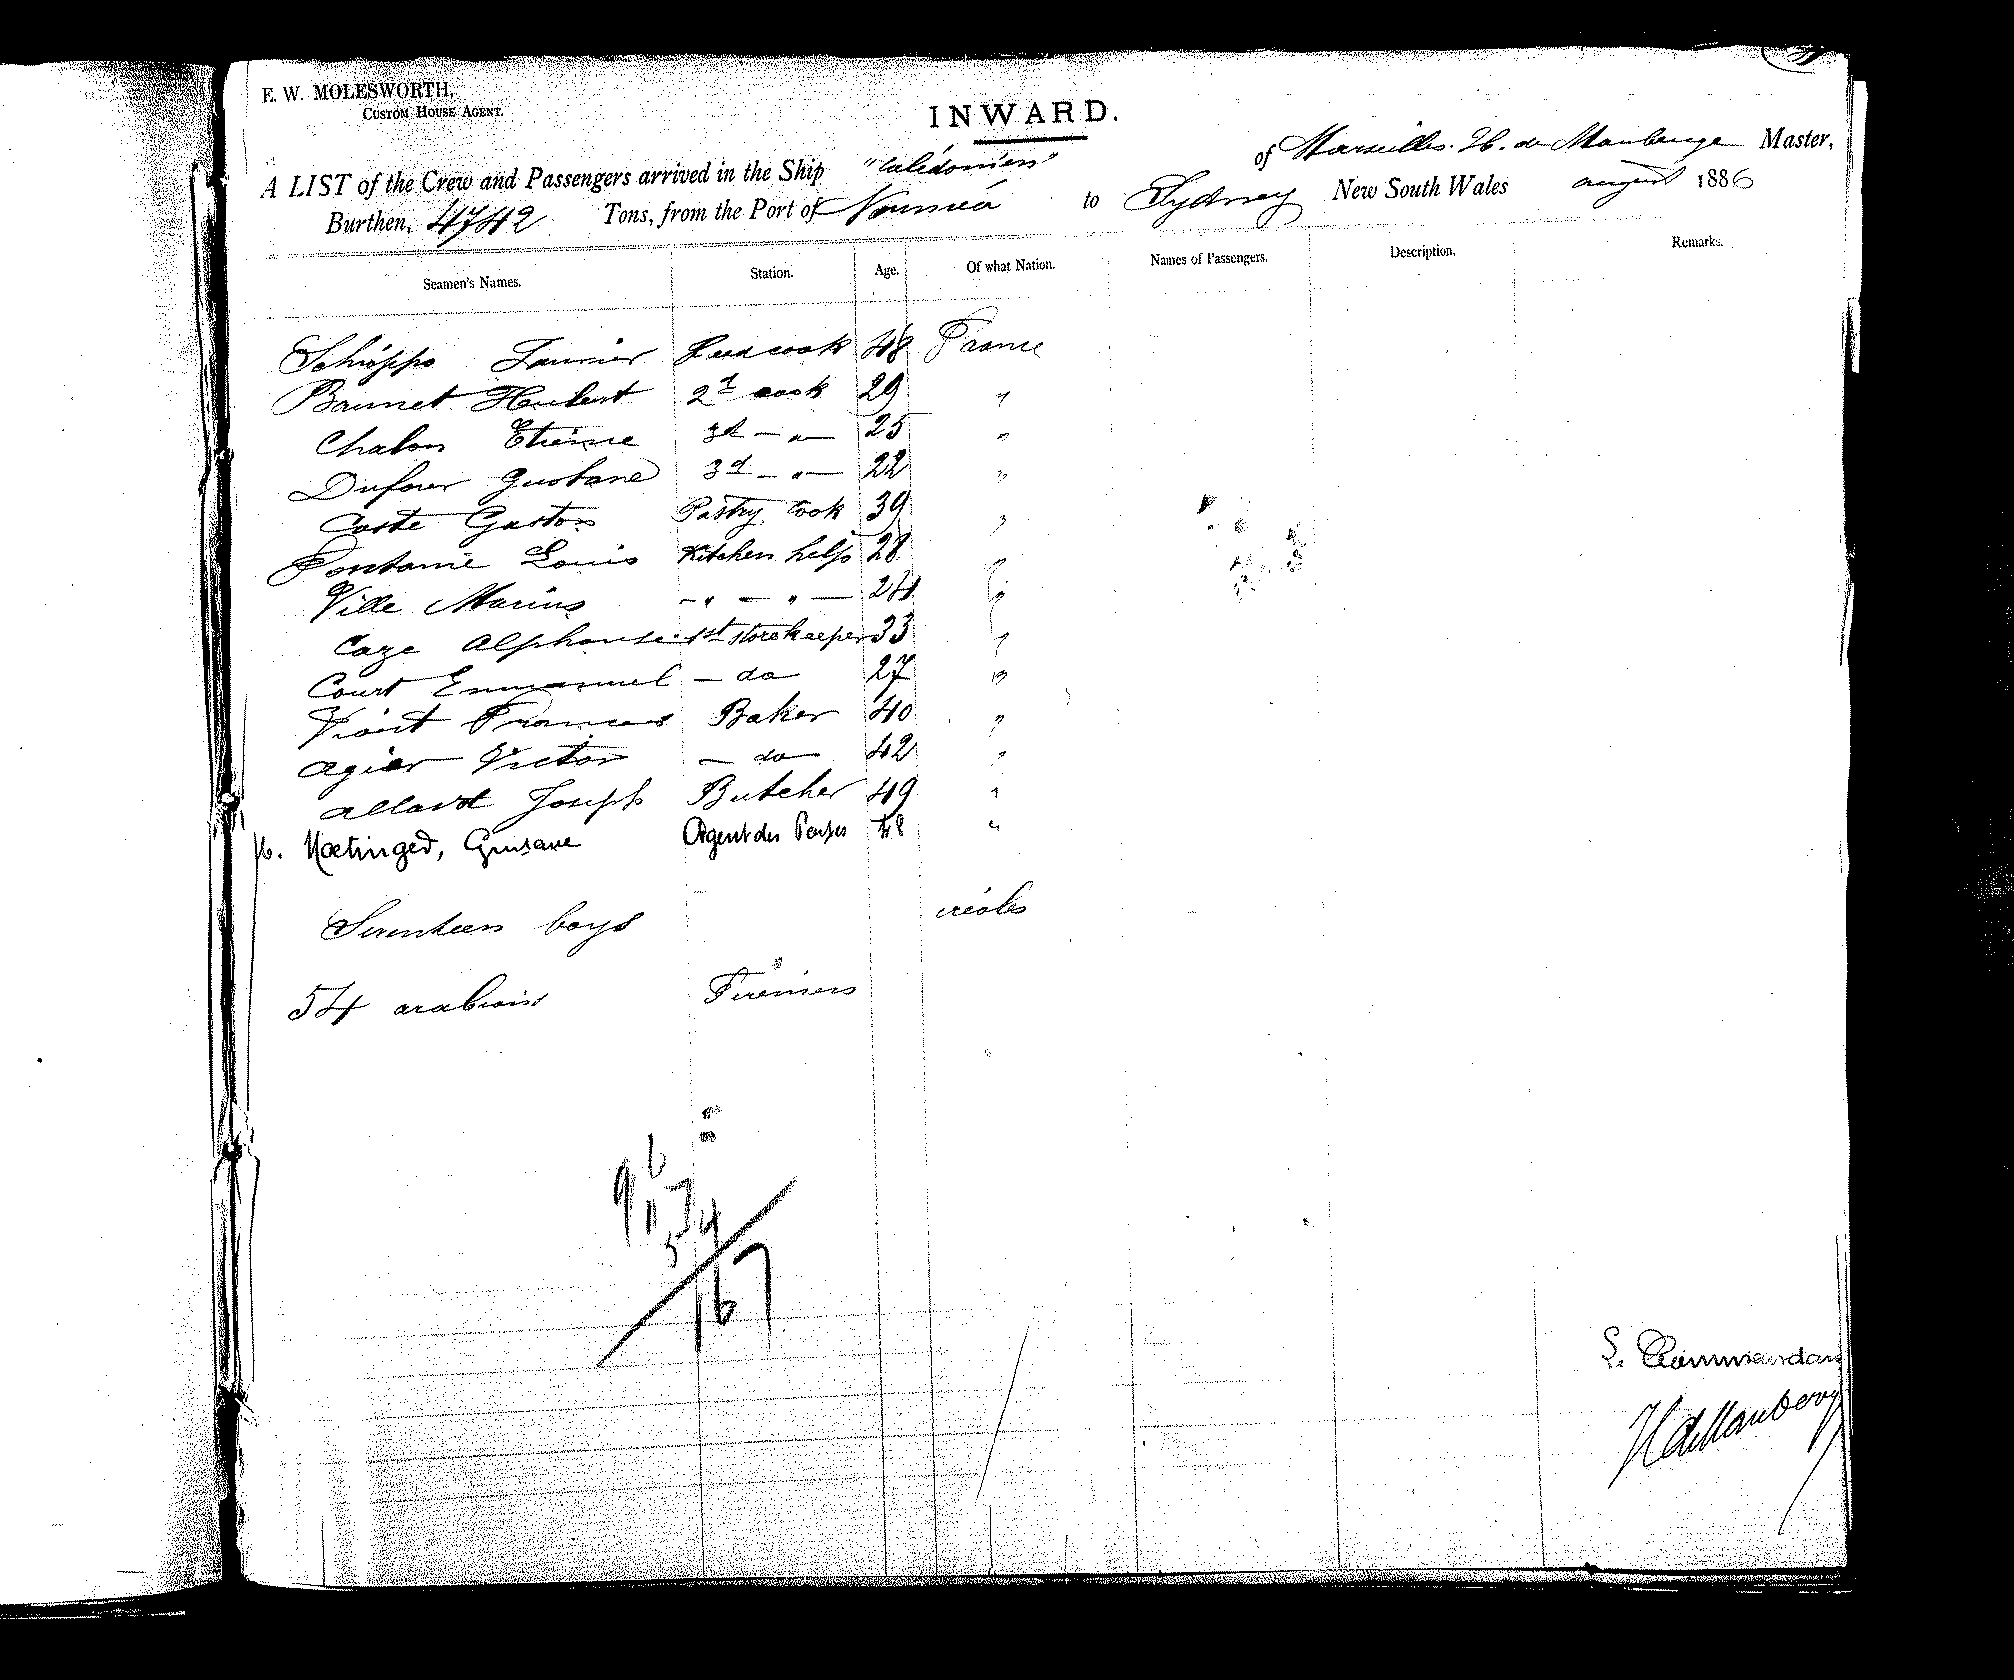 E. W. MOLESWORTH,
CUSTOM HOUSE AGENT.
INWARD.
A LIST of the Crew and Passengers arrived in the Ship "Calédonien" of Marseilles. H. de Maubeuge Master,
Burthen, 4742 Tons, from the Port of Nouméa to Sydney New South Wales august 1886
Seamen's Names. Station. Age. Of what Nation. Names of Passengers. Description. Remarks.
Head cook 48 France
Hubert 2d cook 29 "
Chalon Etienne 3d - " - 25 "
Dufour Gustave 3d - " - 22 "
Coste Gaston Pastry Cook 39 "
Fontanié Louis Kitchen help 28 "
Ville Marius - " - " - 24 "
Caze Alphonse 1st storekeeper 33 "
Court Emmanuel - do 27 "
Baker 40 "
Agier Victor - do - 42 "
Allard Joseph Butcher 49 "
Gustave Agent des Postes 48 "
Seventeen boys créoles
54 arabians Firemen
96
17
54
167
L. Commandant
H de Maubeuge